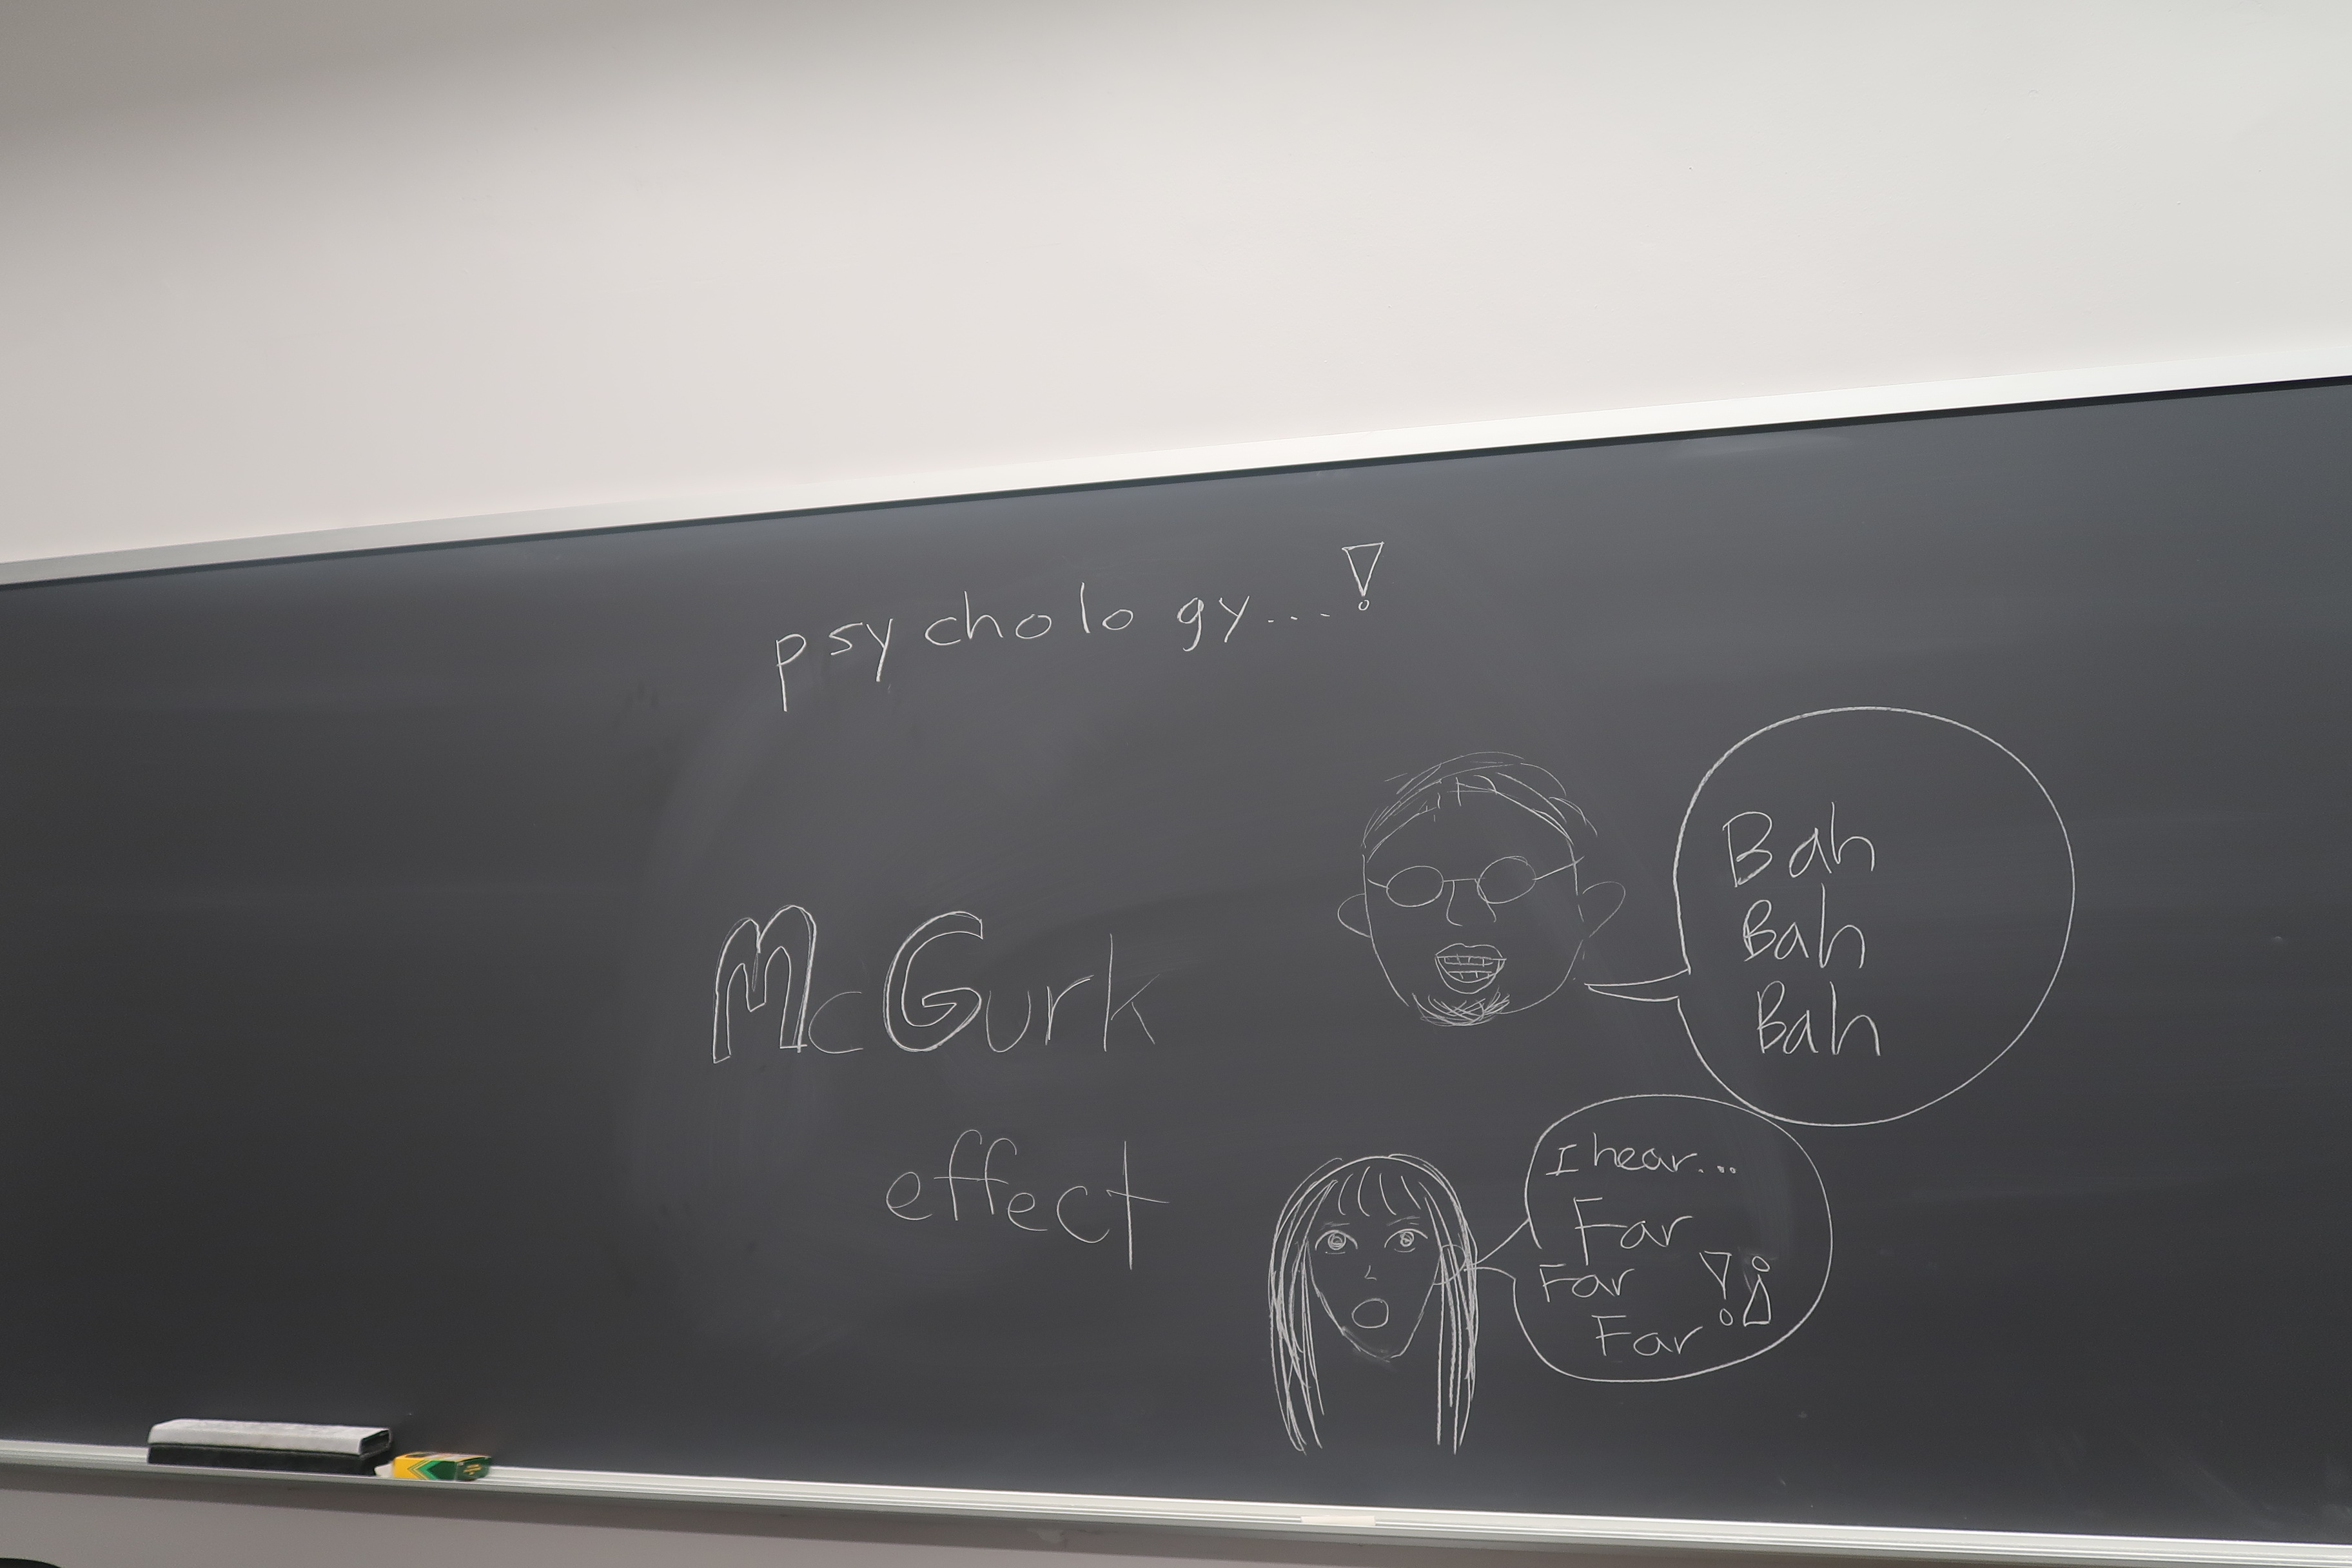 psychology...!
McGurk
effect
Bah
Bah
Bah
I hear...
Far
Far !¡
Far